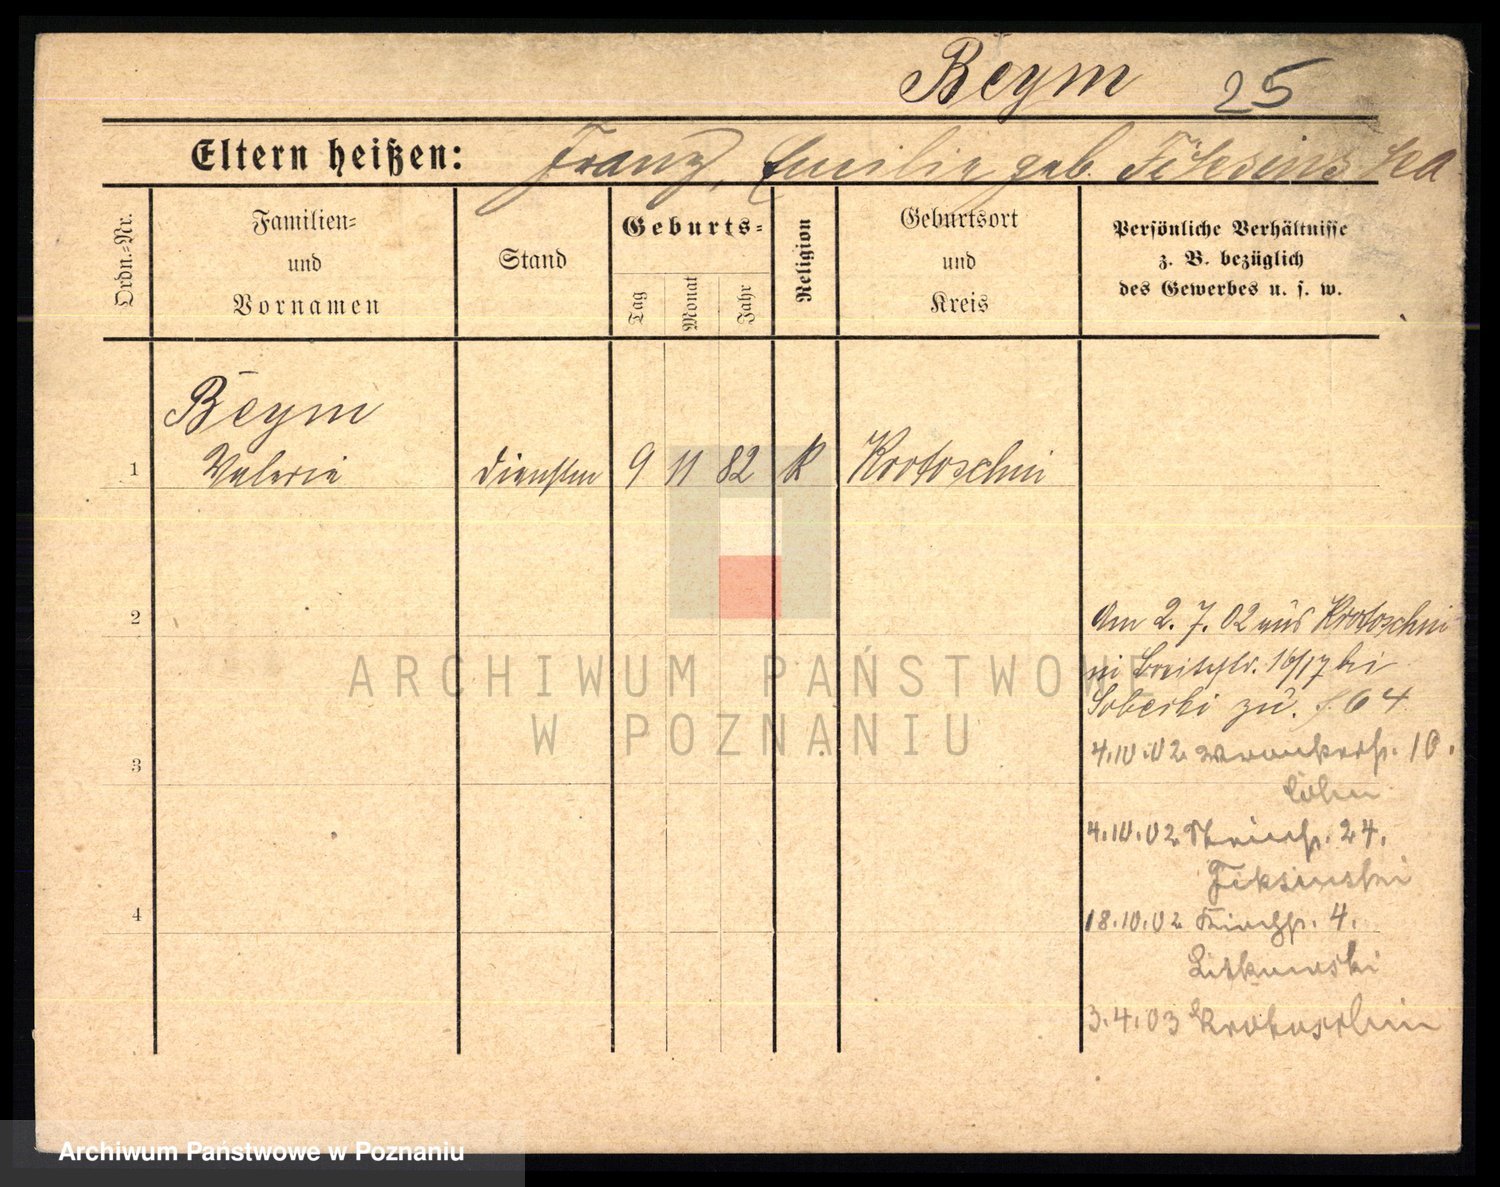 Beym 25
Eltern heißen: Franz, Emilie geb. Fiksinska
Ordn.-Nr.
Familien-
und
Vornamen
Stand
Geburts-
Tag
Monat
Jahr
Religion
Geburtsort
und
Kreis
Persönliche Verhältnisse
z. B. bezüglich
des Gewerbes u. s. w.
Beym
1 Valerie 9 11 82 k Krotoschin
2
Am 2. 7. 02 aus Krotoschin
in Breitestr. 16/17 bei
Soberski zu. 64
3
4.10.02 Wronkerstr. 10.
4.10.02 24.
Fiksinski
4
18.10.02 4.
3.4.03 Krotoschin
ARCHIWUM PAŃSTWOWE
W POZNANIU
Archiwum Państwowe w Poznaniu